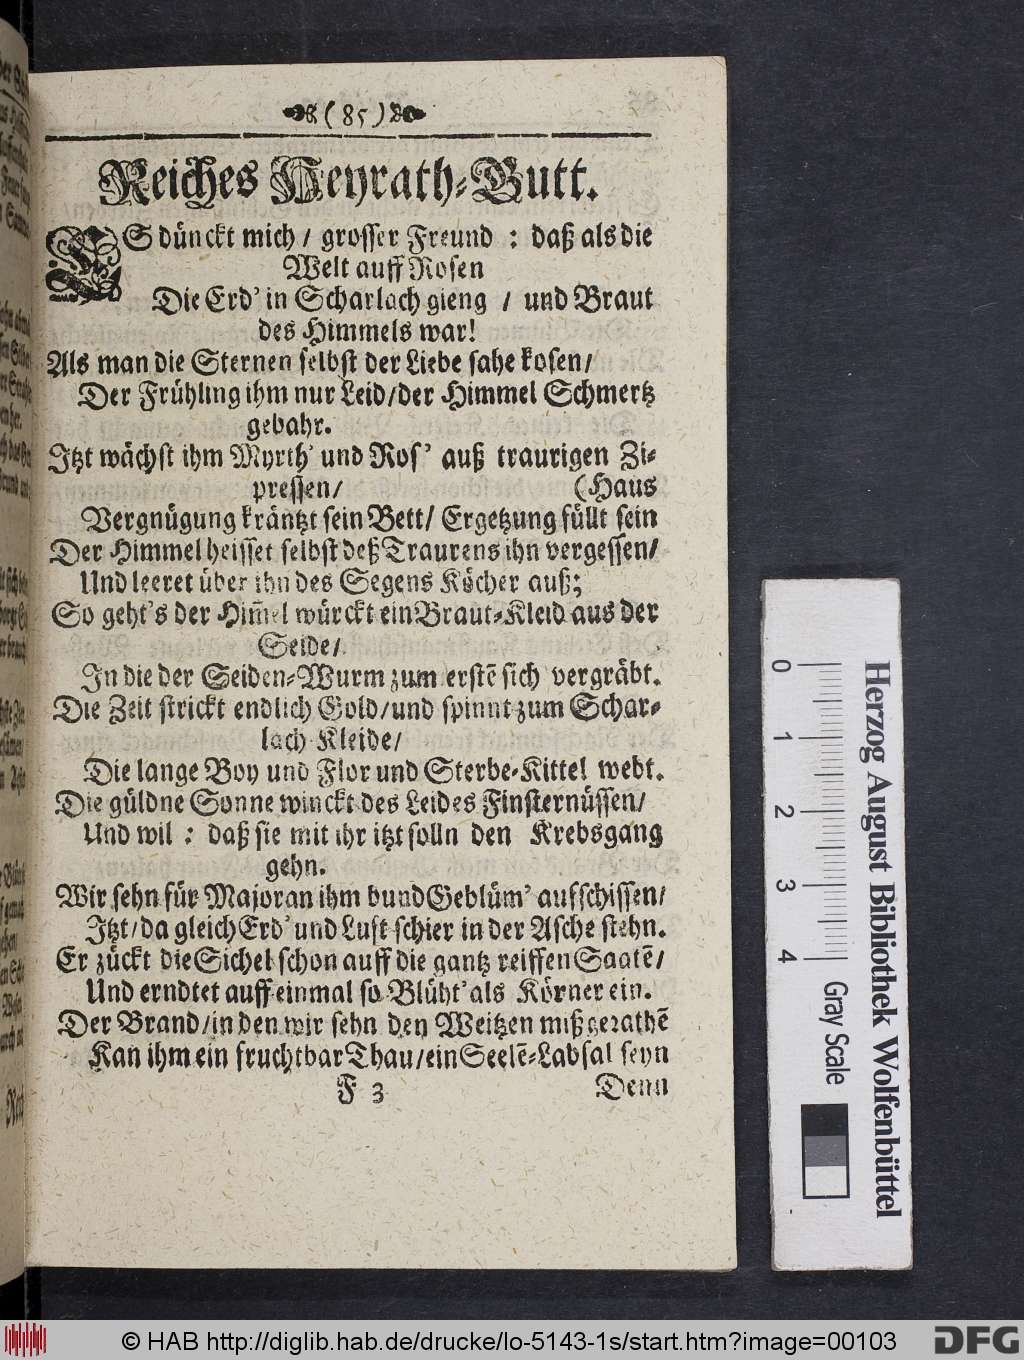 (85)
Reiches Heyrath-Gutt.
ES dünckt mich/ grosser Freund : daß als die
Welt auff Rosen
Die Erd' in Scharlach gieng / und Braut
des Himmels war!
Als man die Sternen selbst der Liebe sahe kosen/
Der Frühling ihm nur Leid/der Himmel Schmertz
gebahr.
Itzt wächst ihm Myrth' und Ros' auß traurigen Zi-
pressen/ (Haus
Vergnügung kräntzt sein Bett/ Ergetzung füllt sein
Der Himmel heisset selbst deß Traurens ihn vergessen/
Und leeret über ihn des Segens Köcher auß;
So geht's der Him̄el würckt ein Braut-Kleid aus der
Seide/
In die der Seiden-Wurm zum erstē sich vergräbt.
Die Zeit strickt endlich Gold/und spinnt zum Schar-
lach-Kleide/
Die lange Boy und Flor und Sterbe-Kittel webt.
Die güldne Sonne winckt des Leides Finsternüssen/
Und wil : daß sie mit ihr itzt solln den Krebsgang
gehn.
Wir sehn für Majoran ihm bund Geblüm' aufschissen/
Itzt/da gleich Erd' und Luft schier in der Asche stehn.
Er zückt die Sichel schon auff die gantz reiffen Saatē/
Und erndtet auff einmal so Blüht' als Körner ein.
Der Brand/in den wir sehn den Weitzen mißgerathē
Kan ihm ein fruchtbar Thau/ein Seelē-Labsal seyn
F 3 Denn
0 1 2 3 4
Gray Scale
Herzog August Bibliothek Wolfenbüttel
© HAB http://diglib.hab.de/drucke/lo-5143-1s/start.htm?image=00103
DFG